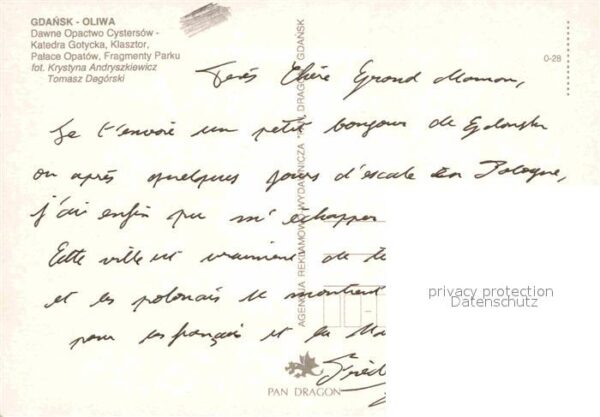 GDAŃSK - OLIWA
Dawne Opactwo Cystersów -
Katedra Gotycka, Klasztor,
Pałace Opatów, Fragmenty Parku
fot. Krystyna Andryszkiewicz
Tomasz Degórski
0-28
Très Chère Grand Maman,
Je t'envoie un petit bonjour de Gdansk
ou après quelques jours d'escale en Pologne,
j'ai enfin pu m'échapper
Cette ville est vraiment de
et les polonais se montrent
pour les français et la
AGENCJA REKLAMOWO-WYDAWNICZA "PAN DRAGON" GDAŃSK
PAN DRAGON
privacy protection
Datenschutz